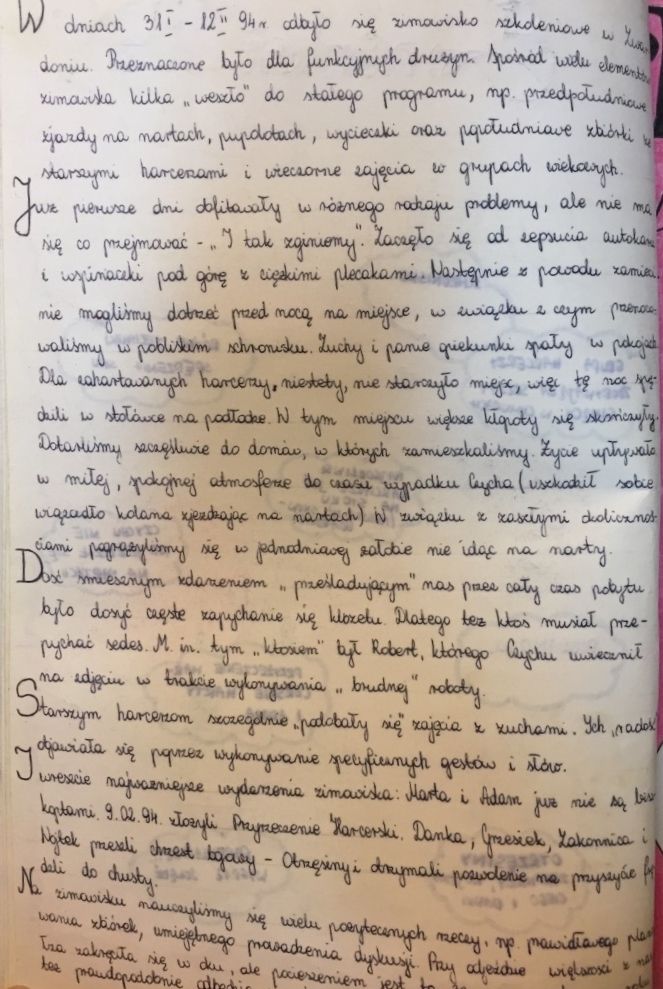 W dniach 31 I - 12 II 94r. odbyło się zimowisko szkoleniowe w Zwar-
doniu. Przeznaczone było dla funkcyjnych drużyn. Spośród wielu elementów
zimowiska kilka „weszło" do stałego programu, np. przedpołudniowe
zjazdy na nartach, pupolotach, wycieczki oraz popołudniowe zbiórki ze
starszymi harcerzami i wieczorne zajęcia w grupach wiekowych.
Już pierwsze dni obfitowały w różnego rodzaju problemy, ale nie ma
się co przejmować - „I tak zginiemy". Zaczęło się od zepsucia autokaru
i wspinaczki pod górę z ciężkimi plecakami. Następnie z powodu zamieci
nie mogliśmy dotrzeć przed nocą na miejsce, w związku z czym przeno-
waliśmy w pobliskim schronisku. Zuchy i panie opiekunki spały w pokojach
Dla zahartowanych harcerzy, niestety, nie starczyło miejsc, więc tę noc spę-
dzili w stołówce na podłodze. W tym miejscu większe kłopoty się skończyły.
Dotarliśmy szczęśliwie do domów, w których zamieszkaliśmy. Życie upływało
w miłej, spokojnej atmosferze do czasu wypadku Czycha (uszkodził sobie
wiązadło kolana zjeżdżając na nartach) W związku z zaszłymi okolicznoś-
ciami pogrążyliśmy się w jednodniowej żałobie nie idąc na narty.
Dość śmiesznym zdarzeniem „prześladującym" nas przez cały czas pobytu
było dosyć częste zapychanie się klozetu. Dlatego też ktoś musiał prze-
pychać sedes. M. in. tym „ktosiem" był Robert, którego Czychu uwiecznił
na zdjęciu w trakcie wykonywania „brudnej" roboty.
Starszym harcerzom szczególnie „podobały się" zajęcia z zuchami. Ich „radość
objawiała się poprzez wykonywanie specyficznych gestów i słów.
I wreszcie najważniejsze wydarzenia zimowiska: Marta i Adam już nie są bisz-
koptami. 9.02.94. złożyli Przyrzeczenie Harcerskie. Danka, Grzesiek, Zakonnica i
Wojtek przeszli chrzest bojowy - Otrzęsiny i otrzymali pozwolenie na przyszycie frę
dzli do chusty.
Na zimowisku nauczyliśmy się wielu pożytecznych rzeczy, np. prawidłowego plano
wania zbiórek, umiejętnego prowadzenia dyskusji. Przy odjeździe większości z nas
łza zakręciła się w oku, ale pocieszeniem jest to
też prawdopodobnie odbędzie